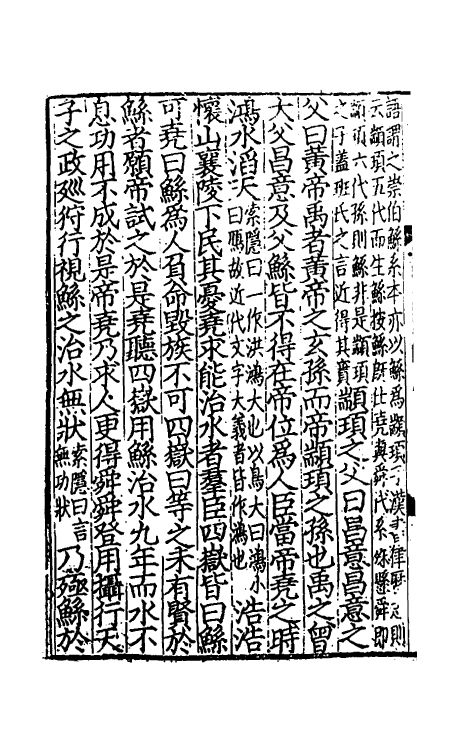 語謂之崇伯鯀系本亦以鯀爲顓頊子漢書律歷志則
云顓頊五代而生鯀按鯀旣仕堯與舜代系殊懸舜即
顓頊六代孫則鯀非是顓頊
之子蓋班氏之言近得其實
顓頊之父曰昌意昌意之
父曰黃帝禹者黃帝之玄孫而帝顓頊之孫也禹之曾
大父昌意及父鯀皆不得在帝位爲人臣當帝堯之時
鴻水滔天
索隱曰一作洪鴻大也以鳥大曰鴻小
曰鴈故近代文字大義者皆作鴻也
浩浩
懷山襄陵下民其憂堯求能治水者羣臣四嶽皆曰鯀
可堯曰鯀爲人負命毀族不可四嶽曰等之未有賢於
鯀者願帝試之於是堯聽四嶽用鯀治水九年而水不
息功用不成於是帝堯乃求人更得舜舜登用攝行天
子之政廵狩行視鯀之治水無狀
索隱曰言
無功狀
乃殛鯀於